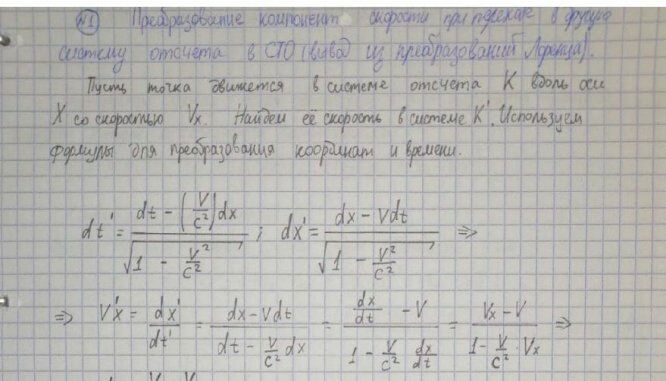 №1 Преобразование компонент скорости при переходе в другую
систему отсчета в СТО (вывод из преобразований Лоренца).
Пусть точка движется в системе отсчета K вдоль оси
X со скоростью Vx. Найдем её скорость в системе K'. Используем
формулы для преобразования координат и времени.
dt' = (dt - (V/c²)dx) / √(1 - V²/c²) ; dx' = (dx - Vdt) / √(1 - V²/c²) ⇒
⇒ V'x = dx'/dt' = (dx - Vdt) / (dt - V/c² dx) = (dx/dt - V) / (1 - V/c² dx/dt) = (Vx - V) / (1 - V/c² · Vx) ⇒